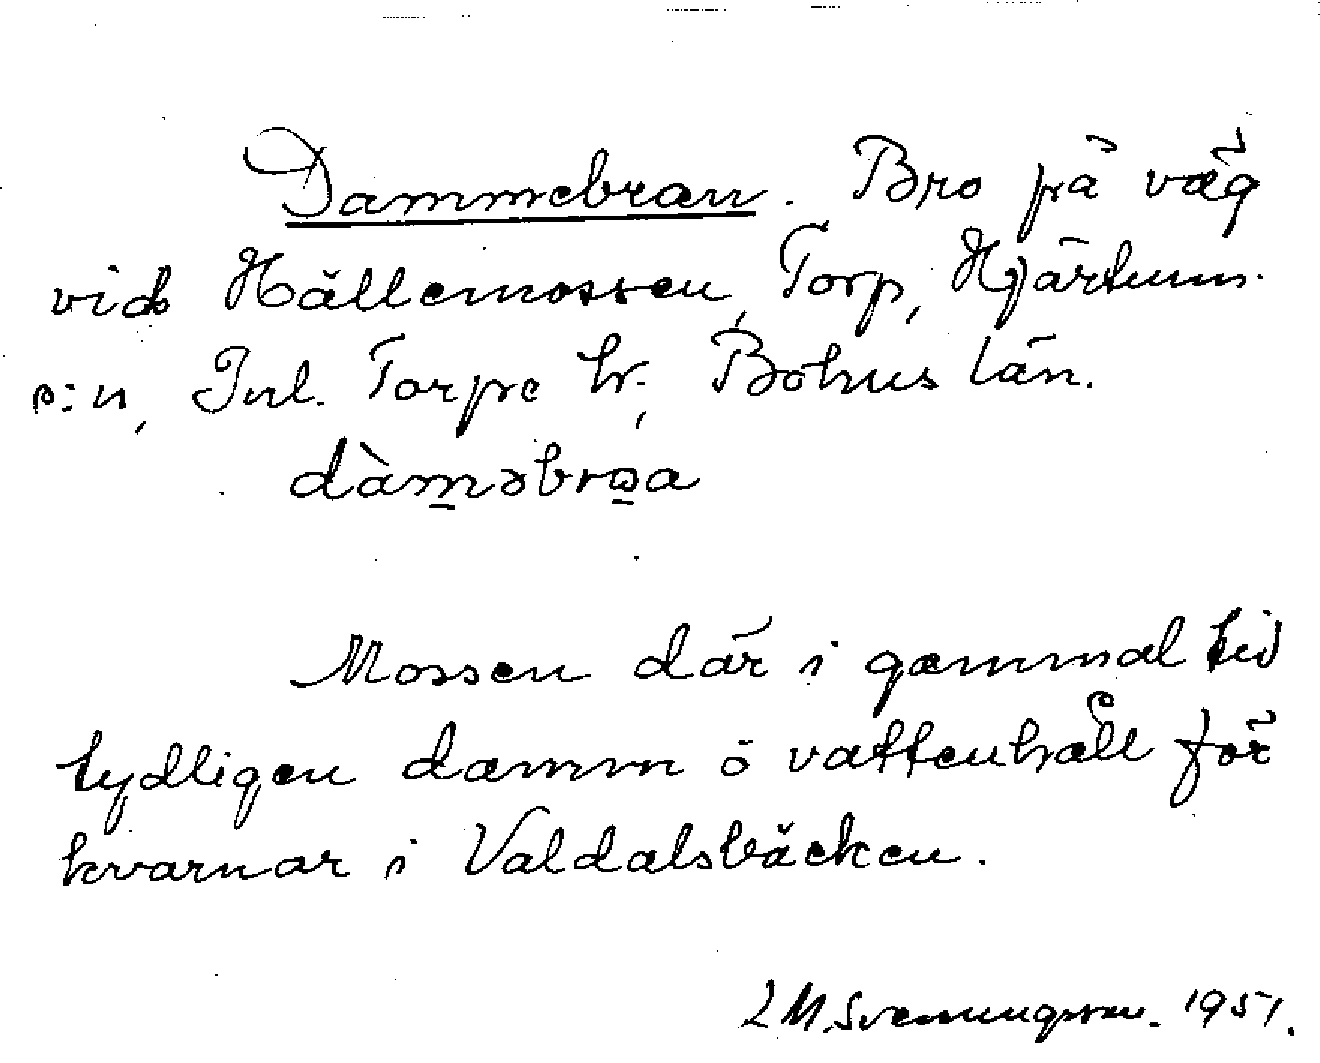 Dammebran. Bro på väg
vid Hällemossen, Torp, Hjärtum
s:n, Inl. Torpe hr, Bohus län.
dàm̠əbro̠a
Mossen där i gammal tid
tydligen damm o vattenhåll för
kvarnar i Valdalsbäcken.
L M. Svenungsson. 1951.